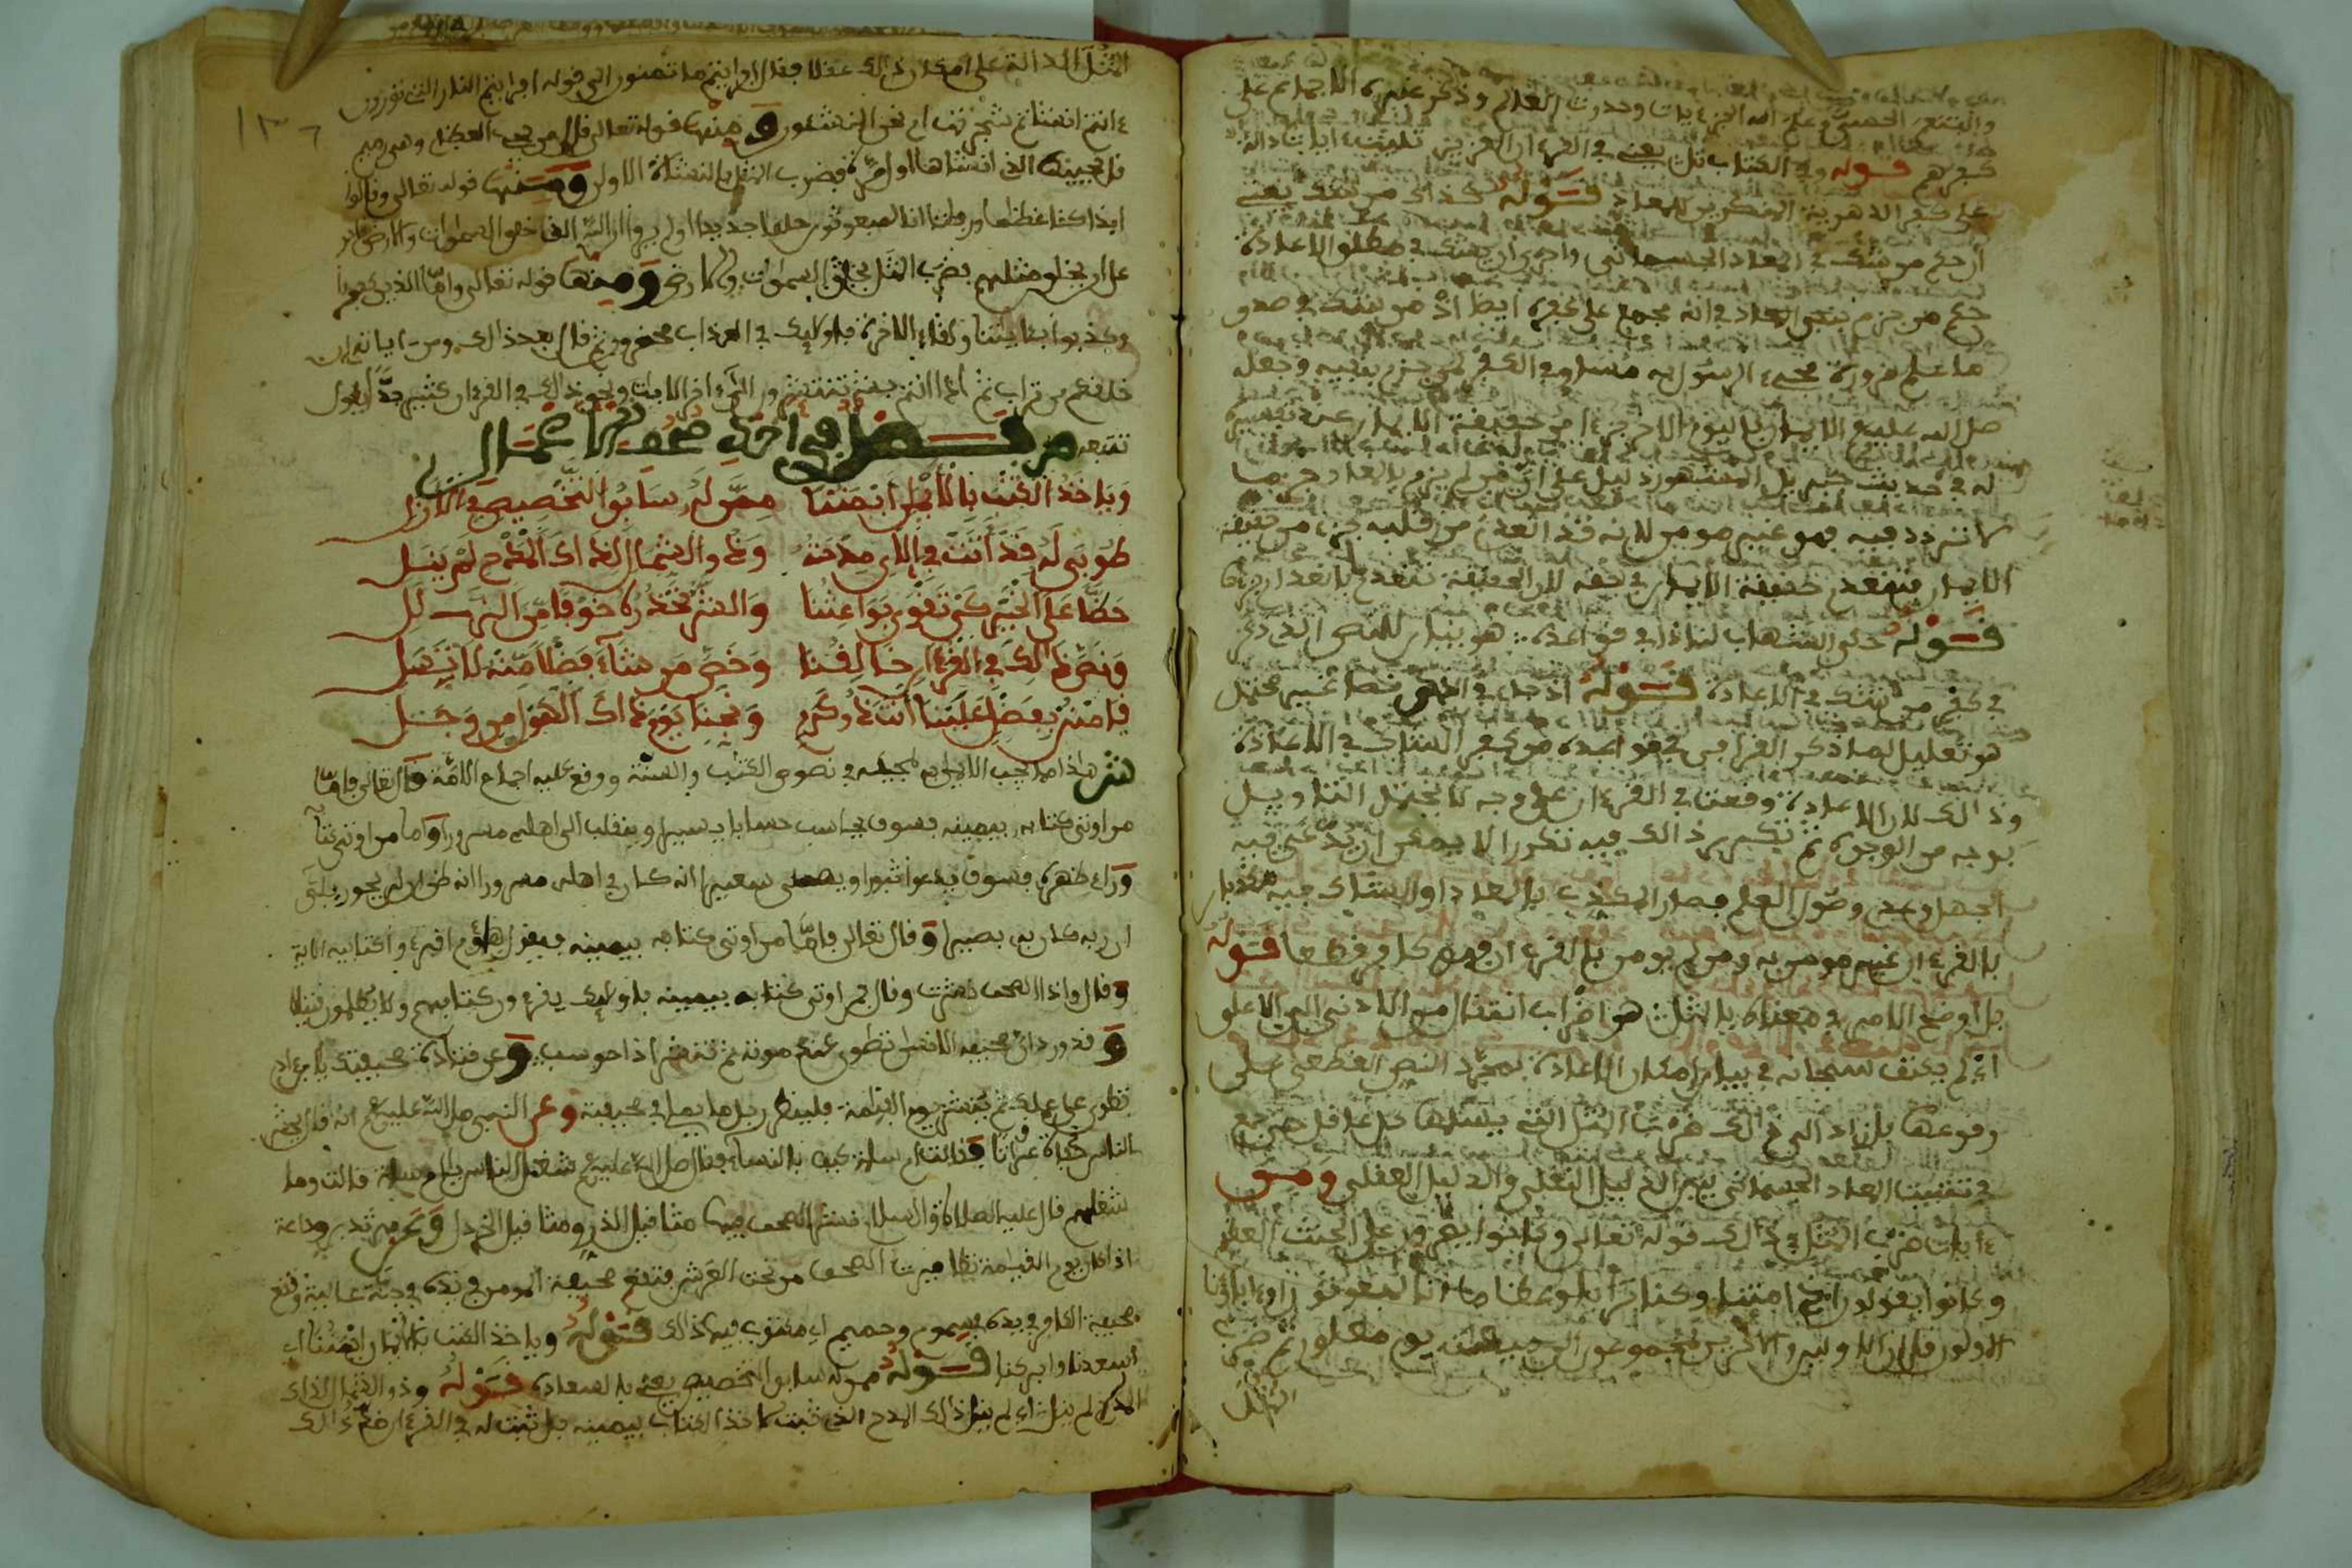 والبعث الجسمي وعلم الله الجزءيات وحدوث العالم وذكر غيره الاجماع على
كفرهم قوله وفي الكتاب تلي يعني في القرءان العزيز تليت ءايات دالة
على كفر الدهرية المنكرين للمعاد قوله كذاك من شك يعني
ان حكم من شك في المعاد الجسماني واحرى ان شك في مطلق الاعادة
حكم من جزم بنفي المعاد في انه مجمع على كفره ايضا اذ من شك في صدق
ما علم ضرورة مجيء الرسول به مساو في الكفر لمن جزم بنفيه وجعله
صلى الله عليه وسلم الايمان باليوم الاخر جزءا من حقيقة الايمان عند تفسيره
له في حديث جبريل المشهور دليل على ان من لم يجزم بالمعاد
تردد فيه فهو غير مومن لانه قد انعدم من قلبه جزء من حقيقة
الايمان فتنعدم حقيقة الايمان في حقه لان الحقيقة تنعدم بانعدام جزئها
قوله حكى الشهاب لنا ذا في قواعده هو بيان للنص الذي ذكر
في كفر من شك في الاعادة قوله اذ جل في الذكر نصا غير محتمل
هو تعليل لما ذكر القرافي في قواعده من كفر الشاك في الاعادة
وذالك لان الاعادة وقعت في القرءان على وجه لا يحتمل التاويل
بوجه من الوجوه ثم تكرر ذالك فيه تكررا لا يمكن ان يدعى فيه
الجهل وعدم وصول العلم فصار المكذب بالمعاد او الشاك فيه مكذبا
بالقرءان غير مومن به ومن لم يومن بالقرءان فهو كافر قطعا قوله
بل اوضح الامر في معناه بالمثل هو اضراب انتقال من الادنى الى الاعلى
اي لم يكتف سبحانه في بيان امكان الاعادة بمجرد النص القطعي على
وقوعها بل زاد الى ذالك ضرب المثل التي يسلمها كل عاقل حتى جمع
في تثبيت المعاد الجسماني بين الدليل النقلي والدليل العقلي ومن
ءايات ضرب المثل في ذالك قوله تعالى وكانوا يصرون على الحنث العظيم
وكانوا يقولون ائذا متنا وكنا ترابا وعظاما انا لمبعوثون اوءاباؤنا
الاولون قل ان الاولين والاخرين لمجموعون الى ميقات يوم معلوم ثم ضرب
المثل
١٣٦
المثل الدالة على امكان ذالك عقلا فقال افرايتم ما تمنون الى قوله افرايتم النار التي تورون
ءانتم انشاتم شجرتها ام نحن المنشئون ومنها قوله تعالى قال من يحيي العظام وهي رميم
قل يحييها الذي انشاها اول مرة فضرب المثل بالنشاة الاولى ومنها قوله تعالى وقالوا
ايذا كنا عظاما ورفاتا انا لمبعوثون خلقا جديدا اولم يروا ان الله الذي خلق السموات والارض قادر
على ان يخلق مثلهم فضرب المثل بخلق السموات والارض ومنها قوله تعالى واما الذين كفروا
وكذبوا بئاياتنا ولقاء الاخرة فاولايك في العذاب محضرون ثم قال بعد ذالك ومن ءاياته ان
خلقكم من تراب ثم اذا انتم بشر تنتشرون الى ءاخر الايات ونحو ذالك في القرءان كثير جدا يطول
تتبعه ص فصل في اخذ صحف الاعمال
وياخذ الكتب بالايمان ايمننا ممن له سابق التخصيص في الازل
طوبى له قد اتت في الاي مدحته وذو الشمال لذاك المدح لم ينل
حضا على الخير كي تقوى بواعثنا والشر نحذره خوفا من الزلل
ونص ذالك في القرءان خالقنا وخص من شاء فضلا منه لا تسل
فامنن بفضل علينا انت ذو كرم ونجنا يوم ذاك الهول من وجل
ش هاذا مما يجب الايمان به لمجيئه في نصوص الكتب والسنة ووقع عليه اجماع الامة قال تعالى فاما
من اوتي كتابه بيمينه فسوف يحاسب حسابا يسيرا وينقلب الى اهله مسرورا واما من اوتي كتابه
وراء ظهره فسوف يدعوا ثبورا ويصلى سعيرا انه كان في اهله مسرورا انه ظن ان لن يحور بلى
ان ربه كان به بصيرا وقال تعالى فاما من اوتي كتابه بيمينه فيقول هاؤم اقرءوا كتابيه الاية
وقال واذا الصحف نشرت وقال فمن اوتي كتابه بيمينه فاولايك يقرءون كتابهم ولا يظلمون فتيلا
وقد ورد ان صحيفة الانسان تطوى عند موته ثم تنشر اذا حوسب وعن قتادة صحيفتك يا ابن ءادم
تطوى على عملك ثم تنشر يوم القيامة فلينظر رجل ما يملي في صحيفته وعن النبي صلى الله عليه وسلم انه قال يحشر
الناس حفاة عراة فقالت ام سلمة كيف بالنساء فقال صلى الله عليه وسلم شغل الناس يا ام سلمة قالت وما
شغلهم قال عليه الصلاة والسلام نشر الصحف فيها مثاقيل الذر ومثاقيل الخردل وعن مرثد بن وداعة
اذا كان يوم القيامة تطايرت الصحف من تحت العرش فتقع صحيفة المومن في يده في جنة عالية وتقع
صحيفة الكافر في يده في سموم وحميم اي مكتوب فيها ذالك قوله وياخذ الكتب بالايمان ايمننا اي
اسعدنا وابركنا قوله ممن له سابق التخصيص يعني بالسعادة قوله وذو الشمال لذاك
المدح لم ينل اي لم ينل ذالك المدح الذي ثبت لاخذ الكتاب بيمينه بل ثبت له في القرءان ضد ذالك